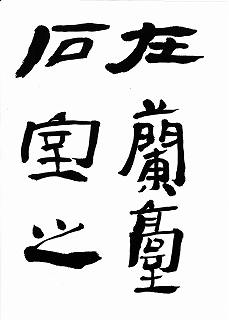 在蘭臺
石室之